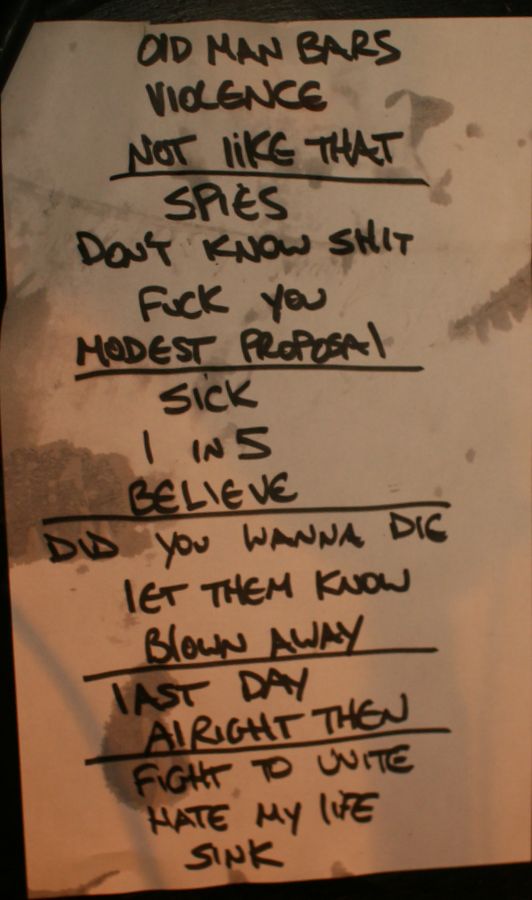 OLD MAN BARS
VIOLENCE
NOT lIKE THAT
SPIES
DON'T KNOW SHIT
FUCK YOU
MODEST PROPOSAl
SiCK
1 IN 5
BELIEVE
DID YOU WANNA DIE
lET THEM KNOW
BlOWN AWAY
lAST DAY
AlRIGHT THEN
FIGHT TO UNITE
HATE MY lIFE
SINK